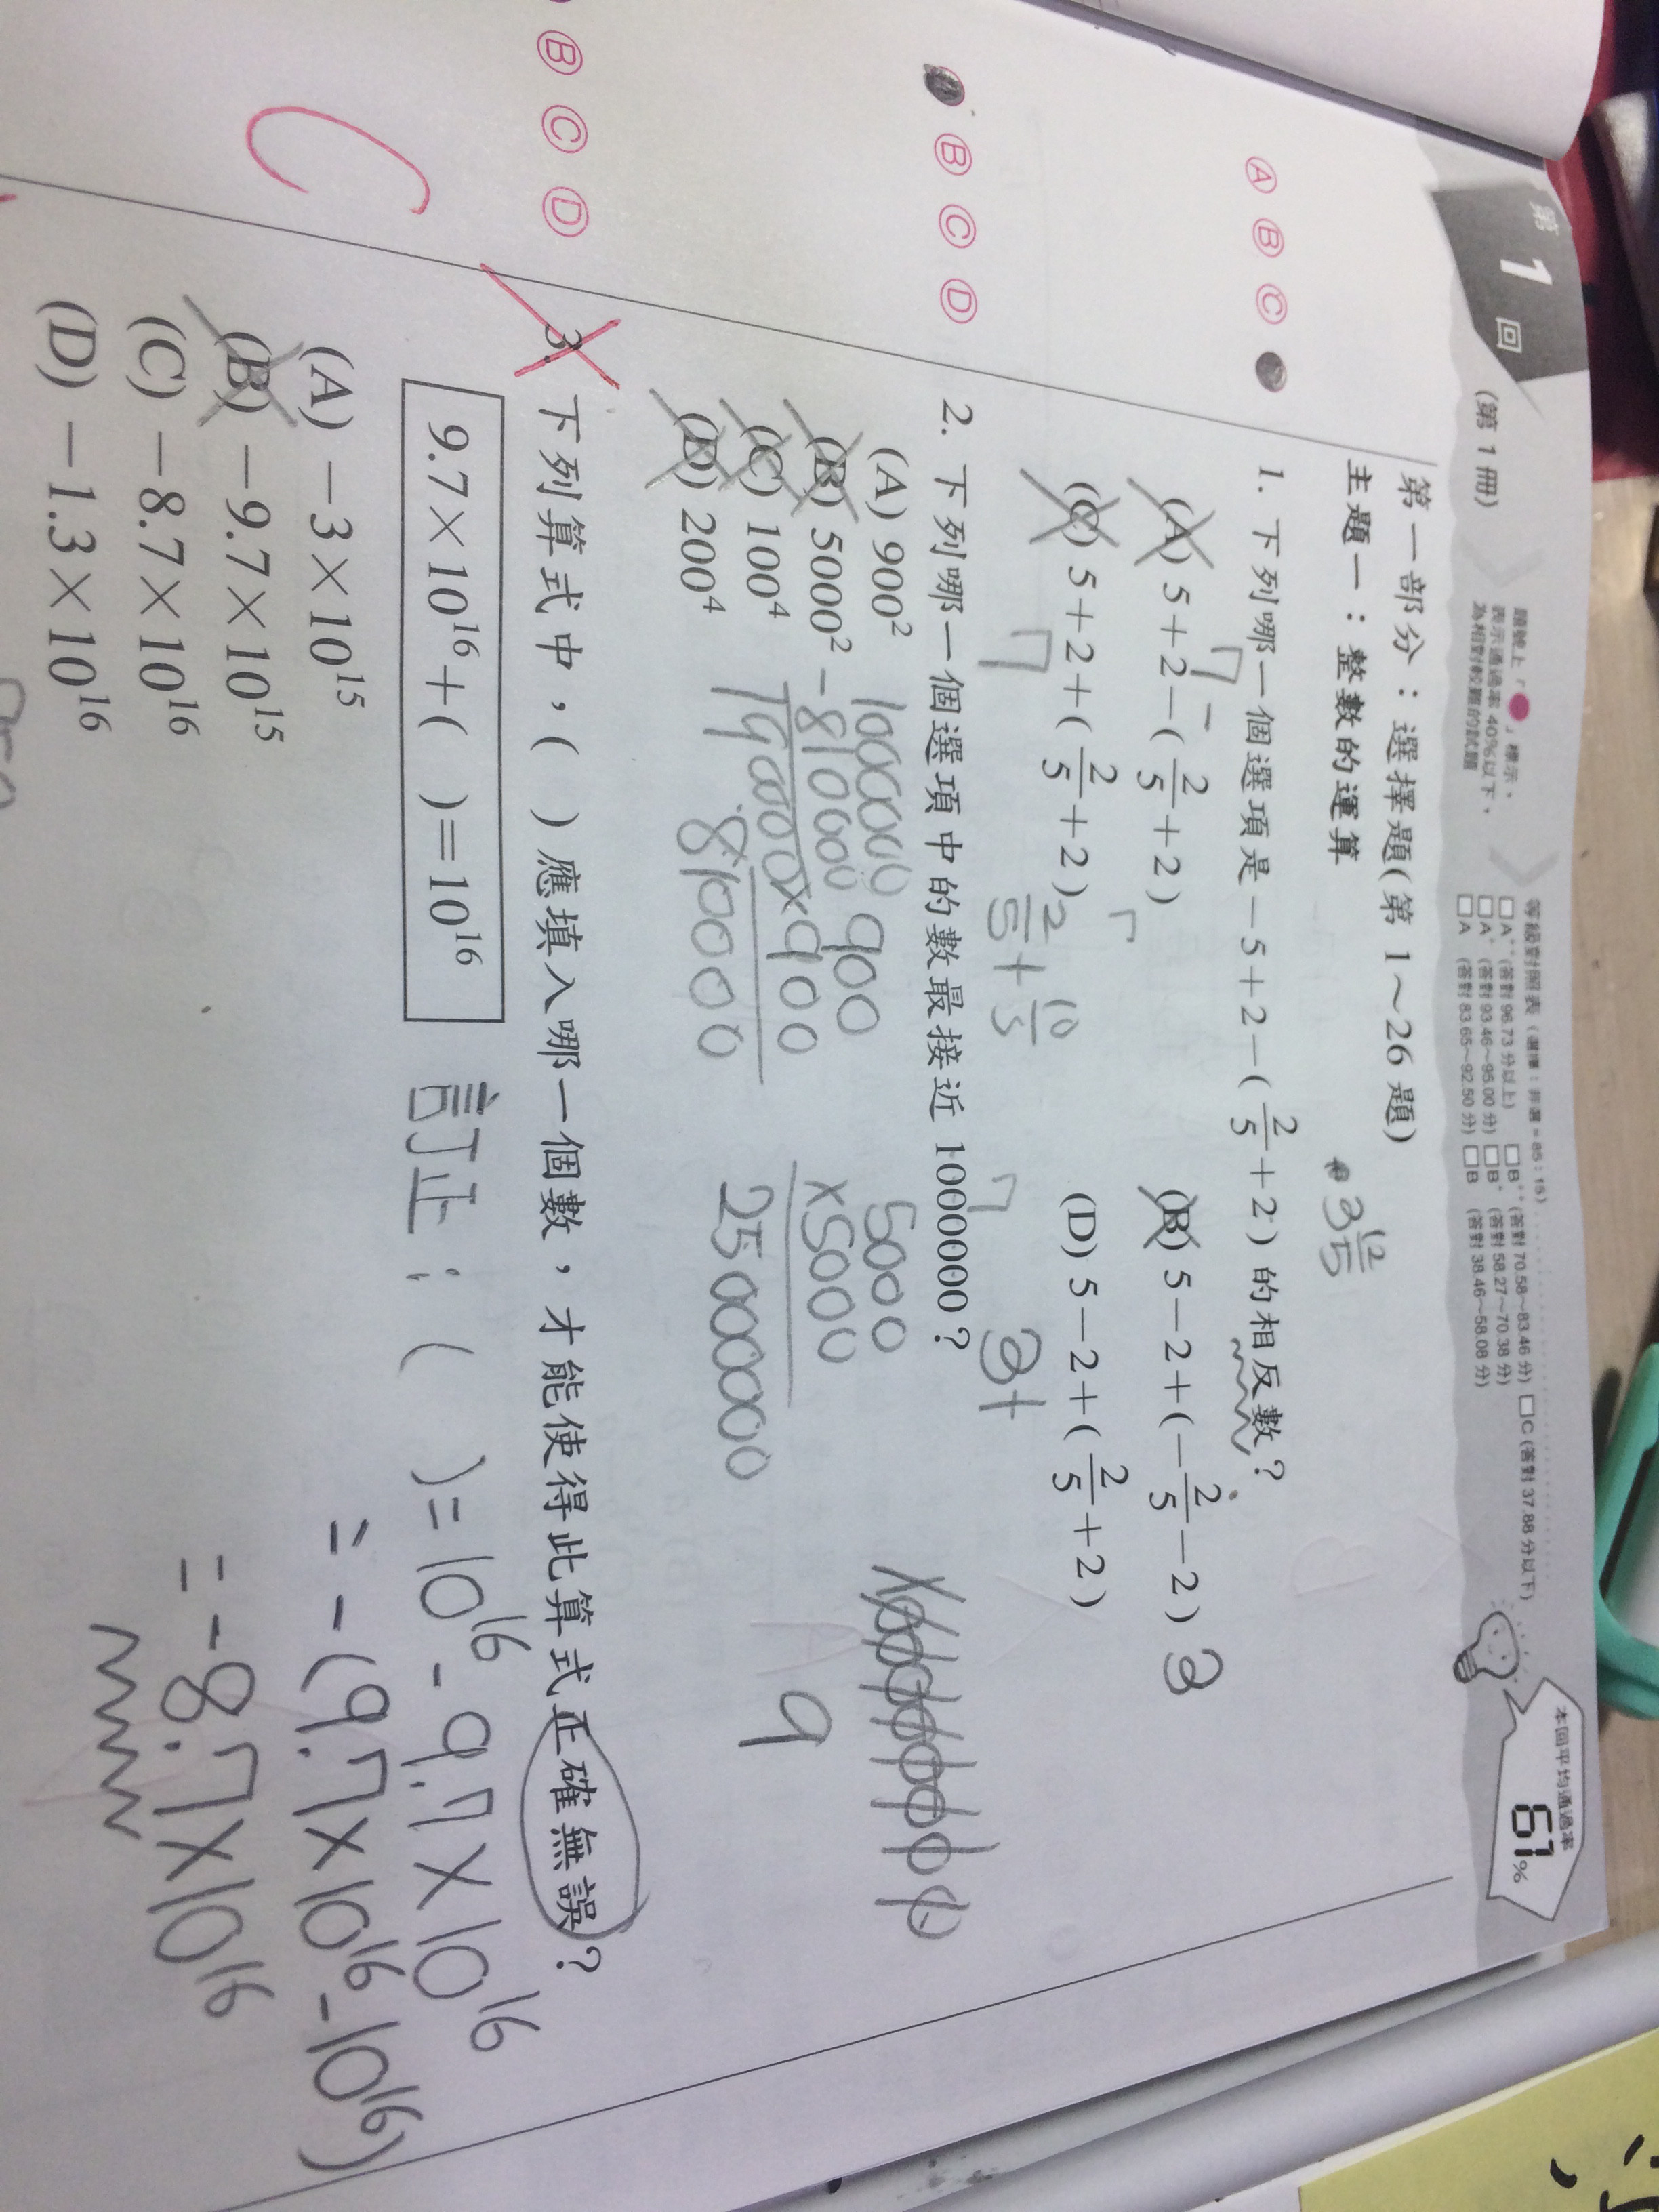 第 1 回
(第 1 冊)
題號上「●」標示，
表示通過率 40%以下，
為相對較難的試題
等級對照表 (選擇：非選＝85：15)
□A⁺⁺ (答對 96.73 分以上) □B⁺⁺ (答對 70.58～83.46 分) □C (答對 37.88 分以下)
□A⁺ (答對 93.46～95.00 分) □B⁺ (答對 58.27～70.38 分)
□A (答對 83.65～92.50 分) □B (答對 38.46～58.08 分)
本回平均通過率
61%
第一部分：選擇題(第 1～26 題)
主題一：整數的運算
Ⓐ Ⓑ Ⓒ
1. 下列哪一個選項是－5＋2－(2/5＋2)的相反數？
(A) 5＋2－(2/5＋2)
(B) 5－2＋(－2/5－2) 3
(C) 5＋2＋(2/5＋2)
(D) 5－2＋(2/5＋2)
3 12/5
7
7
2/5 + 10/5
3+
Ⓑ Ⓒ Ⓓ
2. 下列哪一個選項中的數最接近 1000000？
(A) 900²
(B) 5000²
(C) 100⁴
(D) 200⁴
1000000
- 810000
190000
900
×900
810000
5000
×5000
25000000
9
Ⓑ Ⓒ Ⓓ
3. 下列算式中，( )應填入哪一個數，才能使得此算式正確無誤？
9.7×10¹⁶＋( )＝10¹⁶
(A) －3×10¹⁵
(B) －9.7×10¹⁵
(C) －8.7×10¹⁶
(D) －1.3×10¹⁶
C
訂正：( )=10¹⁶-9.7×10¹⁶
=-(9.7×10¹⁶-10¹⁶)
=-8.7×10¹⁶